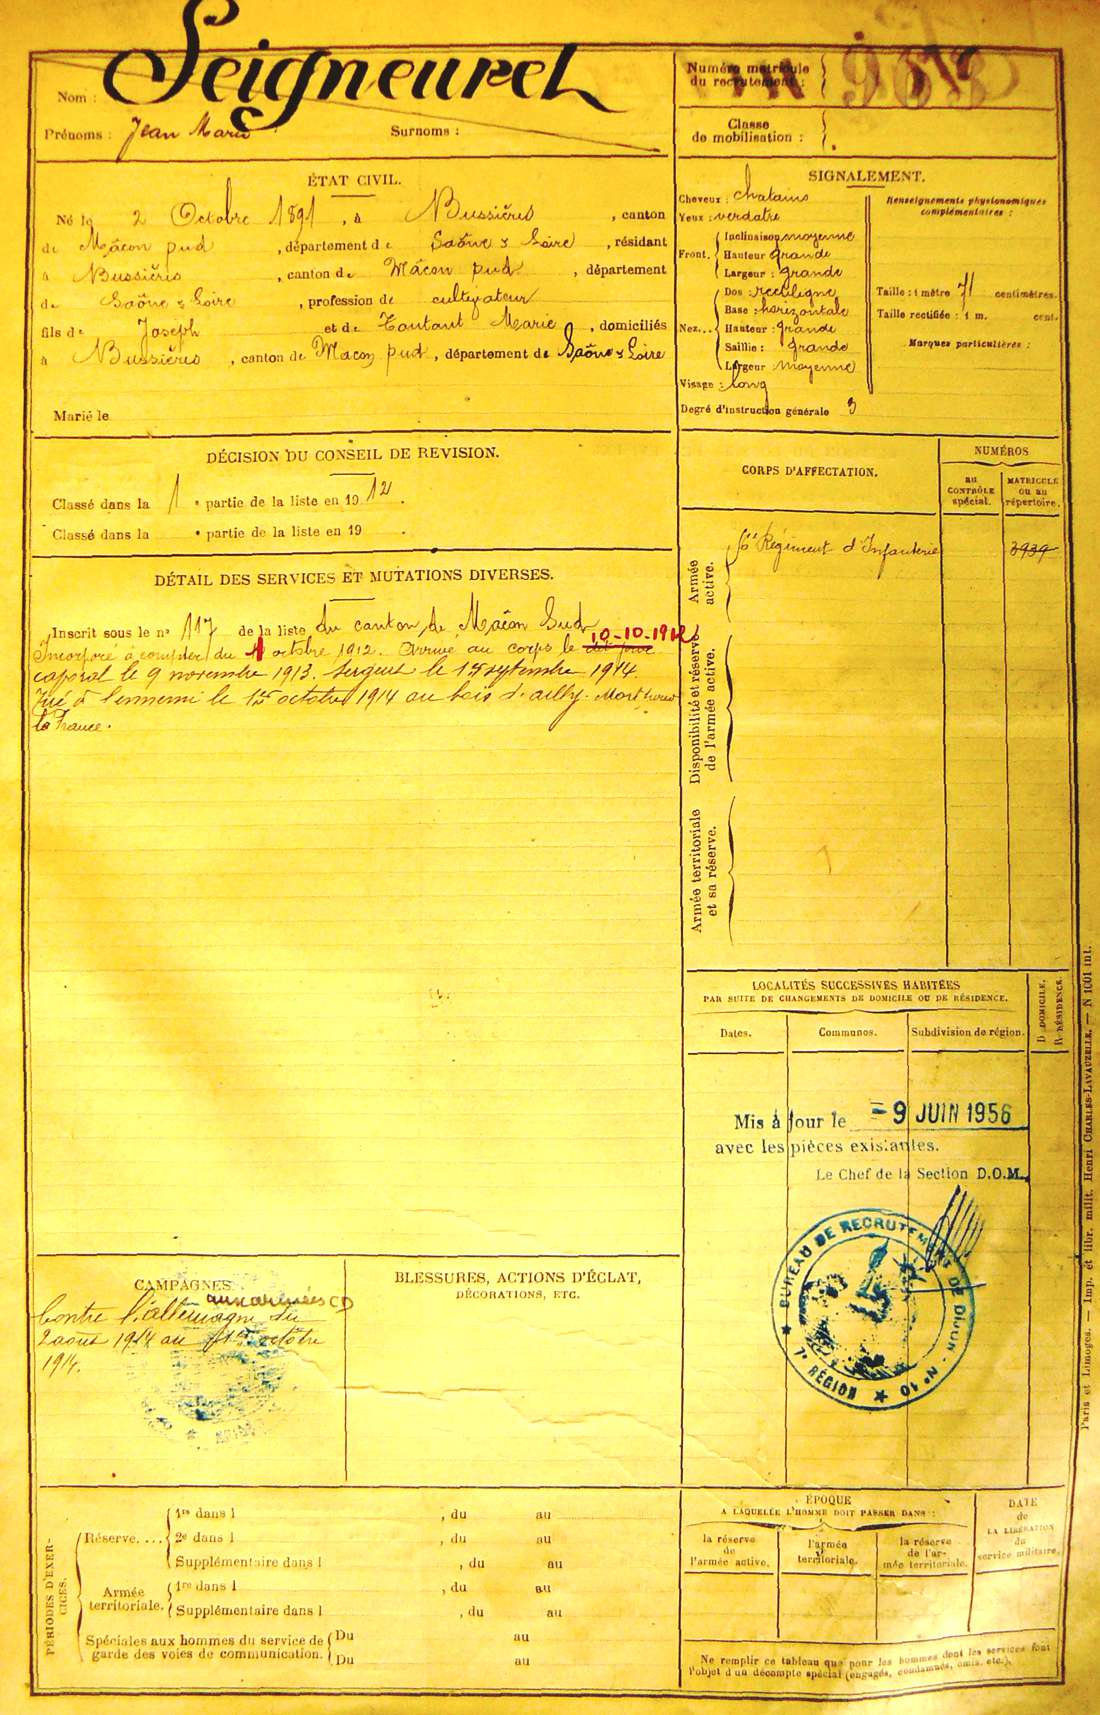 Nom : Seigneuret
Prénoms : Jean Marie Surnoms :
Numéro matricule
du recrutement :
Classe
de mobilisation :
ÉTAT CIVIL.
Né le 2 Octobre 1891, à Bussières, canton
de Mâcon sud, département de Saône & Loire, résidant
à Bussières, canton de Mâcon sud, département
de Saône & Loire, profession de cultivateur
fils de Joseph et de Toutant Marie, domiciliés
à Bussières, canton de Macon sud, département de Saône & Loire
Marié le
SIGNALEMENT.
Cheveux : chatains
Yeux : verdatre
Front. Inclinaison moyenne
Hauteur grande
Largeur : grande
Nez... Dos : rectiligne
Base : horizontale
Hauteur : grande
Saillie : grande
Largeur : moyenne
Visage : long
Degré d'instruction générale 3
Renseignements physionomiques
complémentaires :
Taille : 1 mètre 71 centimètres.
Taille rectifiée : 1 m. cent.
Marques particulières :
DÉCISION DU CONSEIL DE REVISION.
Classé dans la 1 e partie de la liste en 1912.
Classé dans la e partie de la liste en 19 .
DÉTAIL DES SERVICES ET MUTATIONS DIVERSES.
Inscrit sous le n° 117 de la liste du canton de Mâcon Sud
10-10-1912
Incorporé à compter du 1 octobre 1912. Arrivé au corps le dit jour
caporal le 9 novembre 1913. Sergent le 1er septembre 1914.
Tué à l'ennemi le 1er octobre 1914 au bois d'ailly. Mort pour
la France.
CORPS D'AFFECTATION.
NUMÉROS
au
CONTRÔLE
spécial.
MATRICULE
ou au
répertoire.
Armée
active.
Régiment d'Infanterie 3939
Disponibilité et réserve
de l'armée active.
Armée territoriale
et sa réserve.
LOCALITÉS SUCCESSIVES HABITÉES
PAR SUITE DE CHANGEMENTS DE DOMICILE OU DE RÉSIDENCE.
Dates. Communes. Subdivision de région.
D. DOMICILE.
R. RÉSIDENCE.
Mis à jour le -9 JUIN 1956
avec les pièces existantes.
Le Chef de la Section D.O.M.
BUREAU DE RECRUTEMENT DE DIJON - N° 10
7e RÉGION
CAMPAGNES.
aux armées CD
Contre l'allemagne du
2 aout 1914 au 1er octobre
1914.
BLESSURES, ACTIONS D'ÉCLAT,
DÉCORATIONS, ETC.
PÉRIODES D'EXER-
CICES.
Réserve.... 1re dans l , du au
2e dans l , du au
Supplémentaire dans l , du au
Armée
territoriale. 1re dans l , du au
Supplémentaire dans l , du au
Spéciales aux hommes du service de
garde des voies de communication. Du au
Du au
ÉPOQUE
A LAQUELLE L'HOMME DOIT PASSER DANS :
la réserve
de
l'armée active.
l'armée
territoriale.
la réserve
de l'ar-
mée territoriale.
DATE
de
LA LIBÉRATION
du
service militaire.
Ne remplir ce tableau que pour les hommes dont les services font
l'objet d'un décompte spécial (engagés, condamnés, omis, etc.).
Paris et Limoges. — Imp. et libr. milit. Henri CHARLES-LAVAUZELLE. — N 1001 int.